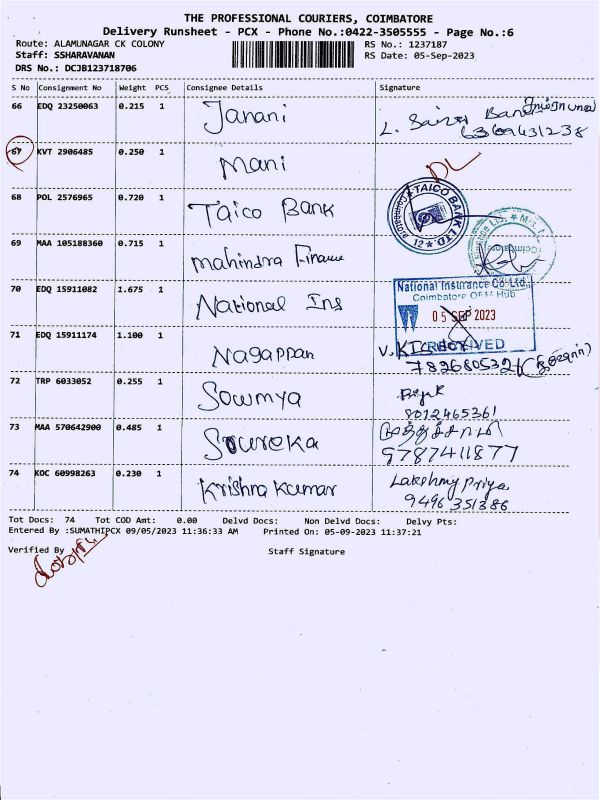 THE PROFESSIONAL COURIERS, COIMBATORE
Delivery Runsheet - PCX - Phone No.:0422-3505555 - Page No.:6
Route: ALAMUNAGAR CK COLONY RS No.: 1237187
Staff: SSHARAVANAN RS Date: 05-Sep-2023
DRS No.: DCJB123718706
S No Consignment No Weight PCS Consignee Details Signature
66 EDQ 23250063 0.215 1 Janani L.
6369431238
67 KVT 2906485 0.250 1 Mani DL
68 POL 2576965 0.720 1 Taico Bank TAICO BANK LTD. 12
69 MAA 105188360 0.715 1 Mahindra Finance
70 EDQ 15911082 1.675 1 National Ins National Insurance Co. Ltd.
Coimbatore Hub
05 SEP 2023
RECEIVED
71 EDQ 15911174 1.100 1 Nagappan
72 TRP 6033052 0.255 1 Sowmya
8012465361
73 MAA 570642900 0.485 1 Soureka
9787411877
74 KOC 60998263 0.230 1 Krishna Kumar Lakshmy Priya
9496351386
Tot Docs: 74 Tot COD Amt: 0.00 Delvd Docs: Non Delvd Docs: Delvy Pts:
Entered By :SUMATHIPCX 09/05/2023 11:36:33 AM Printed On: 05-09-2023 11:37:21
Verified By Staff Signature